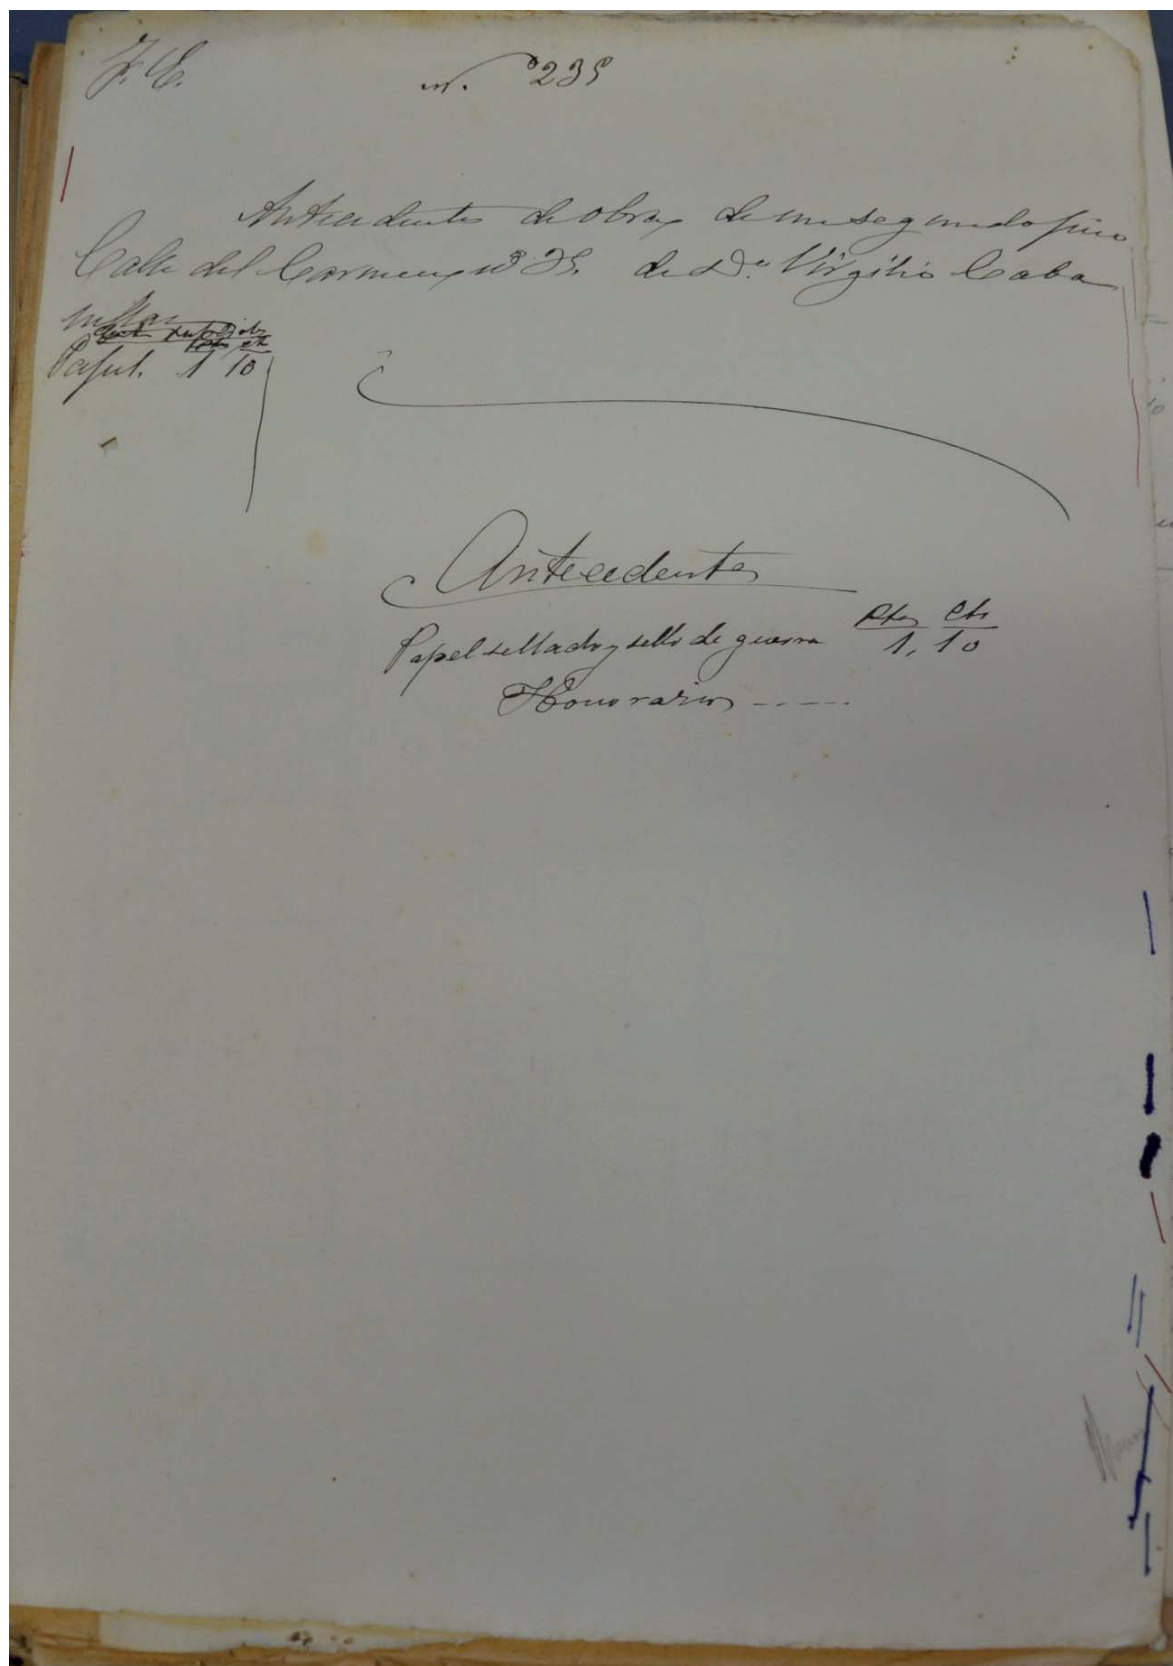 J. E.
n.º 235
Antecedentes de obras de un segundo piso
Calle del Carmen nº 25. de Dⁿ. Virgilio Caba
nillas
Ptas ct
Papel. 1 10
Antecedentes
Ptas Cts
Papel sellado y sello de guerra 1,10
Honorarios -----